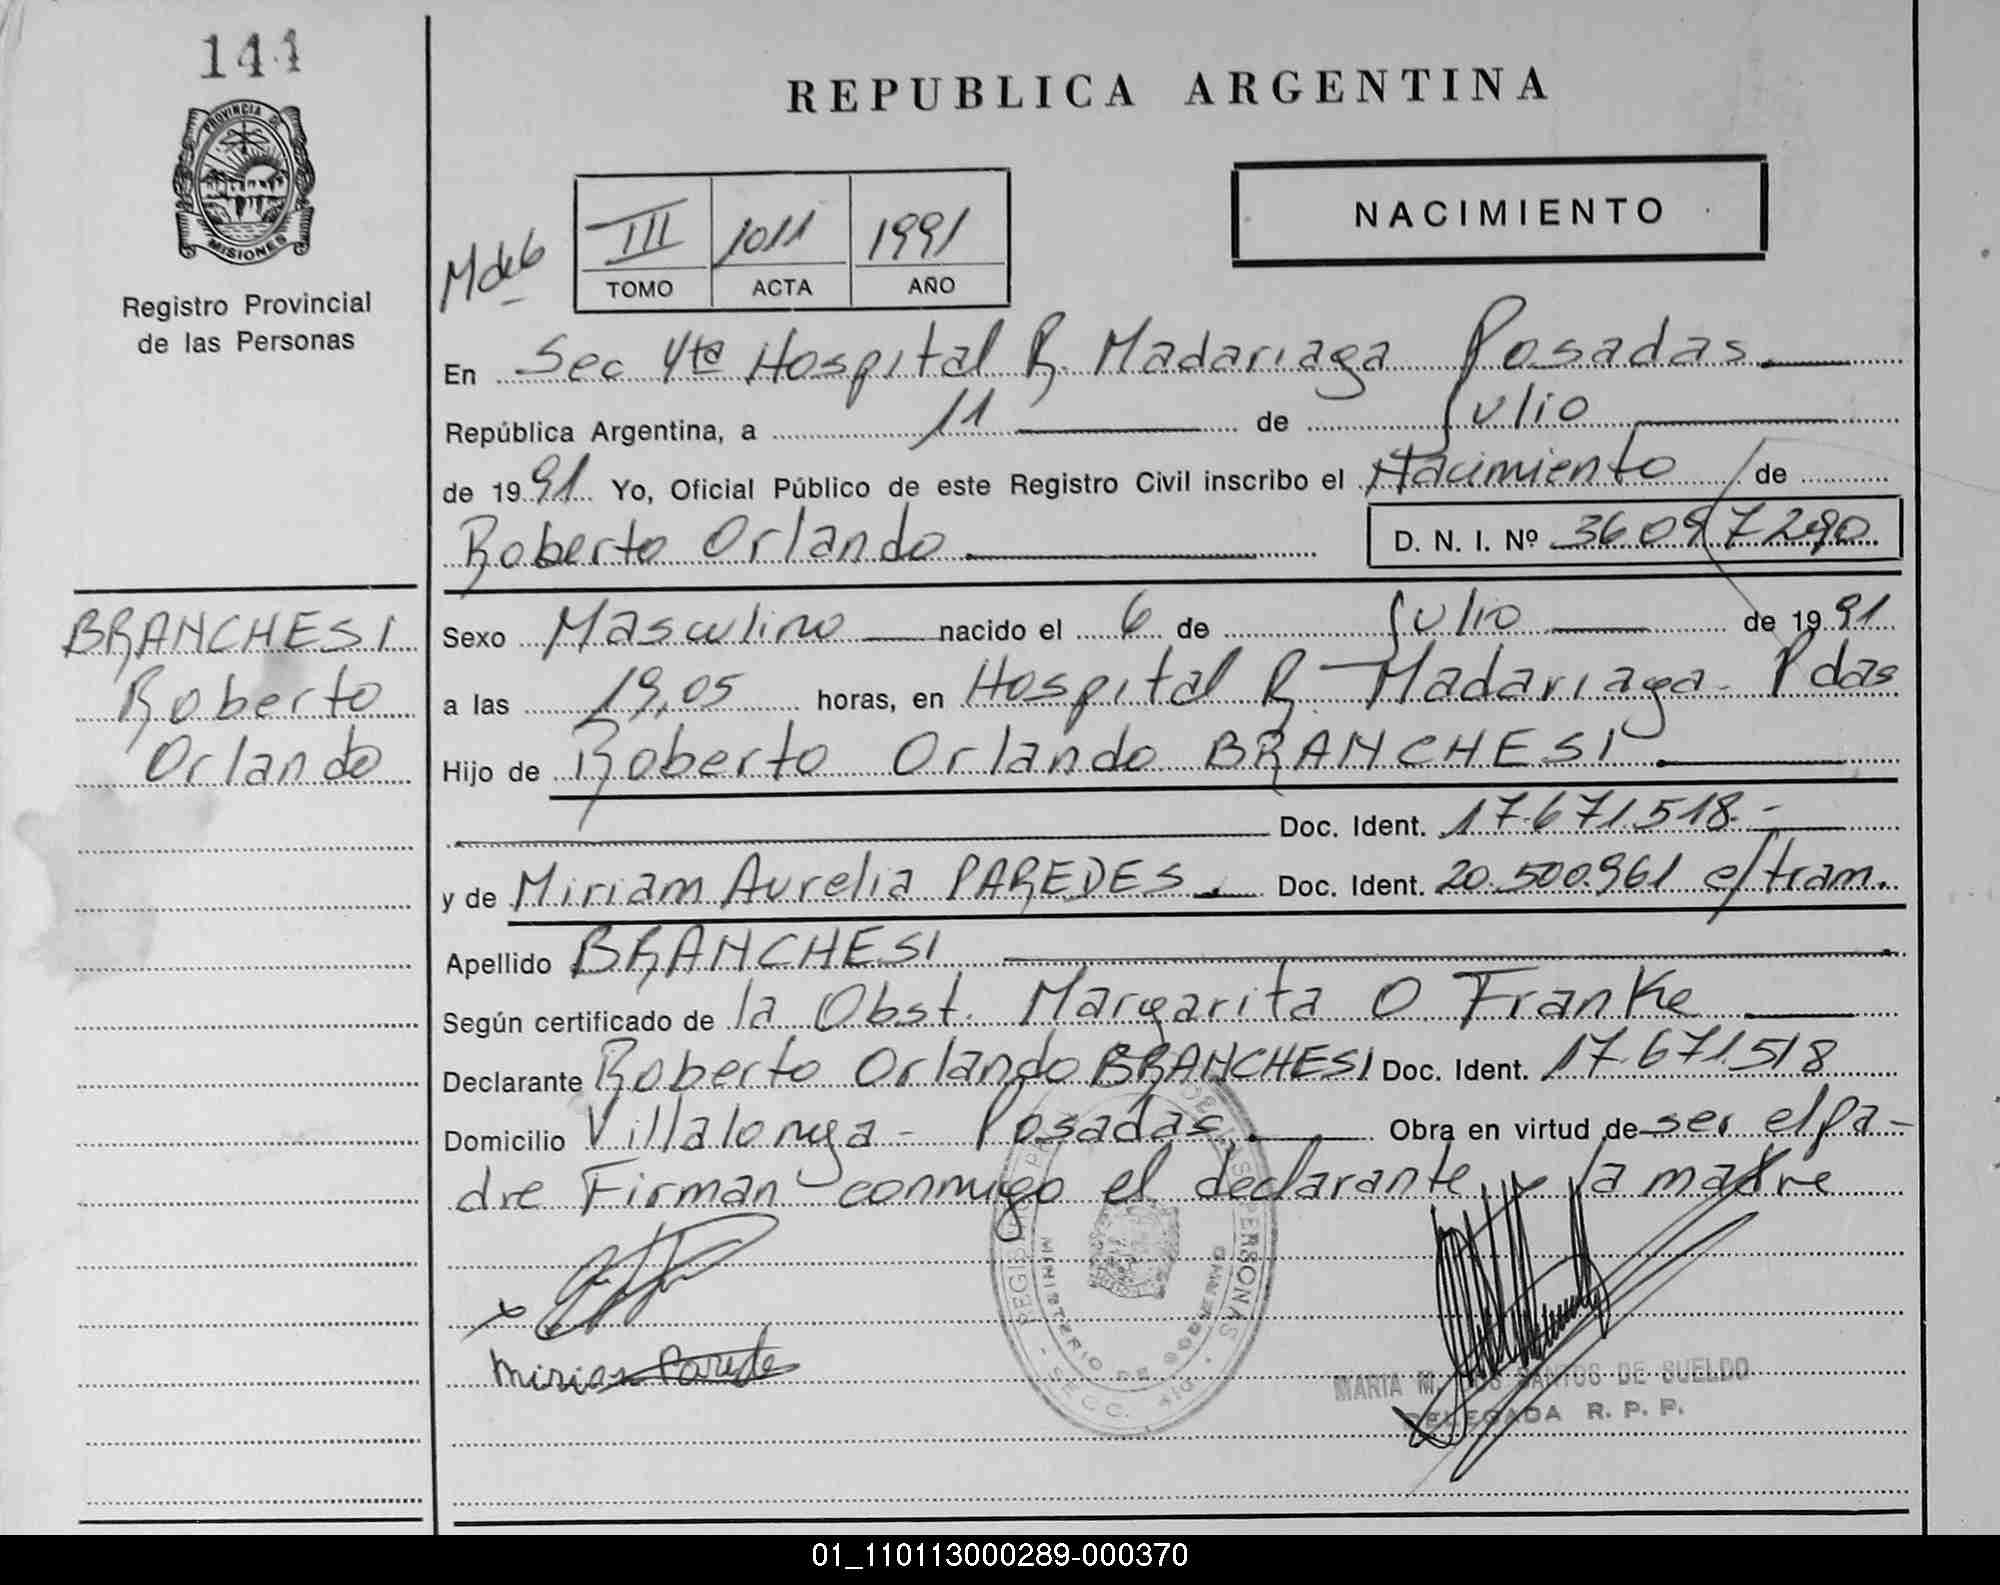 144
PROVINCIA DE
MISIONES
Registro Provincial
de las Personas
REPUBLICA ARGENTINA
NACIMIENTO
III 1011 1991
TOMO ACTA AÑO
En Sec 4ta Hospital R. Madariaga Posadas.
República Argentina, a 11 de Julio
de 1991 Yo, Oficial Público de este Registro Civil inscribo el Nacimiento de
Roberto Orlando D. N. I. Nº 36097290
BRANCHESI
Roberto
Orlando
Sexo Masculino nacido el 6 de Julio de 1991
a las 19,05 horas, en Hospital R. Madariaga - Pdas
Hijo de Roberto Orlando BRANCHESI
Doc. Ident. 17.671.518.-
y de Miriam Aurelia PAREDES. Doc. Ident. 20.500.961 e/tram.
Apellido BRANCHESI
Según certificado de la Obst. Margarita O Franke
Declarante Roberto Orlando BRANCHESI Doc. Ident. 17.671.518
Domicilio Villalonga - Posadas. Obra en virtud de ser el pa-
dre Firman conmigo el declarante y la madre
Miriam Paredes
MARIA M. DOS SANTOS DE SUELDO
DELEGADA R. P. P.
01_110113000289-000370